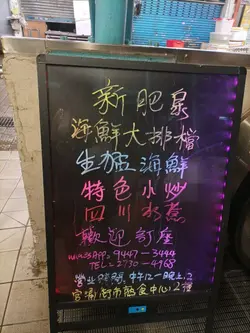 新肥泉
海鮮大排檔
生猛海鮮
特色小炒
四川水煮
歡迎訂座
WhatsAPP=9447-3444
TEL=2730-4968
營业時間、中午12一晚上、2
官涌街市熟食中心、2樓